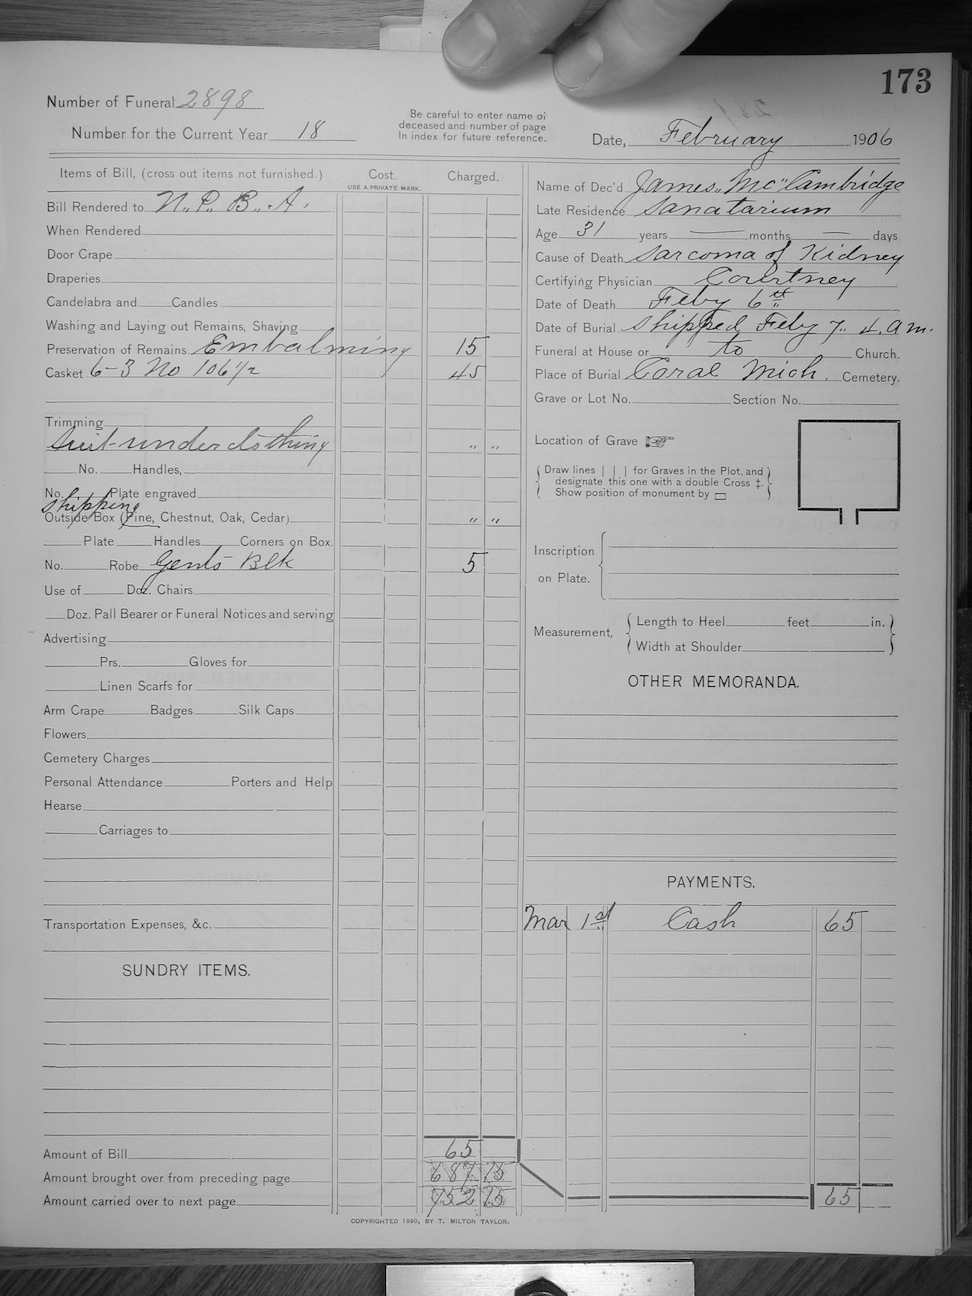 173
Number of Funeral 2898
Number for the Current Year 18
Be careful to enter name of
deceased and number of page
In index for future reference.
Date, February 1906
Items of Bill, (cross out items not furnished.) Cost. Charged.
USE A PRIVATE MARK.
Bill Rendered to N.P.B.A.
When Rendered
Door Crape
Draperies
Candelabra and Candles
Washing and Laying out Remains, Shaving
Preservation of Remains Embalming 15
Casket 6-3 No 106 1/2 45
Trimming
Suit-underclothing " "
No. Handles,
No. Plate engraved
shipping
Outside Box (Pine, Chestnut, Oak, Cedar) " "
Plate Handles Corners on Box.
No. Robe Gents Blk 5
Use of Doz. Chairs
Doz. Pall Bearer or Funeral Notices and serving
Advertising
Prs. Gloves for
Linen Scarfs for
Arm Crape Badges Silk Caps
Flowers
Cemetery Charges
Personal Attendance Porters and Help
Hearse
Carriages to
Transportation Expenses, &c.
SUNDRY ITEMS.
Amount of Bill 65
Amount brought over from preceding page 687 75
Amount carried over to next page 752 75
Name of Dec'd James "Mc" Cambridge
Late Residence Sanatarium
Age 31 years — months — days
Cause of Death Sarcoma of Kidney
Certifying Physician Courtney
Date of Death Feby 6th
Date of Burial Shipped Feby 7" 4 am.
Funeral at House or to Church.
Place of Burial Coral Mich. Cemetery.
Grave or Lot No. Section No.
Location of Grave ☞
Draw lines | | | for Graves in the Plot, and
designate this one with a double Cross ‡.
Show position of monument by ▭
Inscription
on Plate.
Measurement, Length to Heel feet in.
Width at Shoulder
OTHER MEMORANDA.
PAYMENTS.
Mar 1st Cash 65
65
COPYRIGHTED 1890, BY T. MILTON TAYLOR.